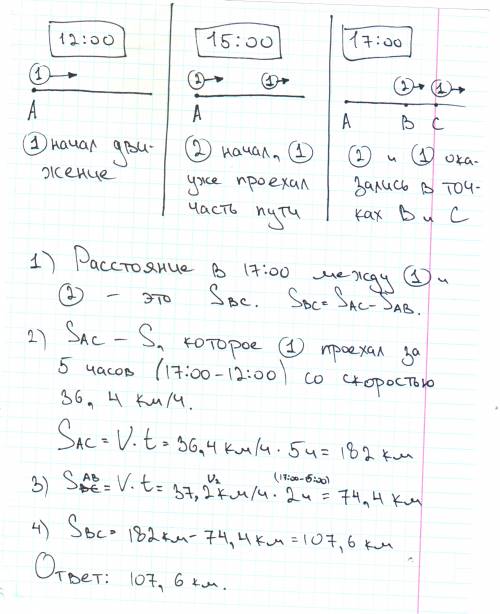 12:00
① →
A
① начал дви-
жение
15:00
② → ① →
A
② начал, ①
уже проехал
часть пути
17:00
② → ① →
A B C
② и ① ока-
зались в точ-
ках B и C
1) Расстояние в 17:00 между ① и
② – это S_BC. S_BC = S_AC – S_AB.
2) S_AC – S, которое ① проехал за
5 часов (17:00-12:00) со скоростью
36,4 км/ч.
S_AC = V·t = 36,4 км/ч · 5ч = 182 км
3) S_AB = V·t = 37,2 км/ч · 2ч = 74,4 км
V₂
4) S_BC = 182км – 74,4 км = 107,6 км
Ответ: 107,6 км.